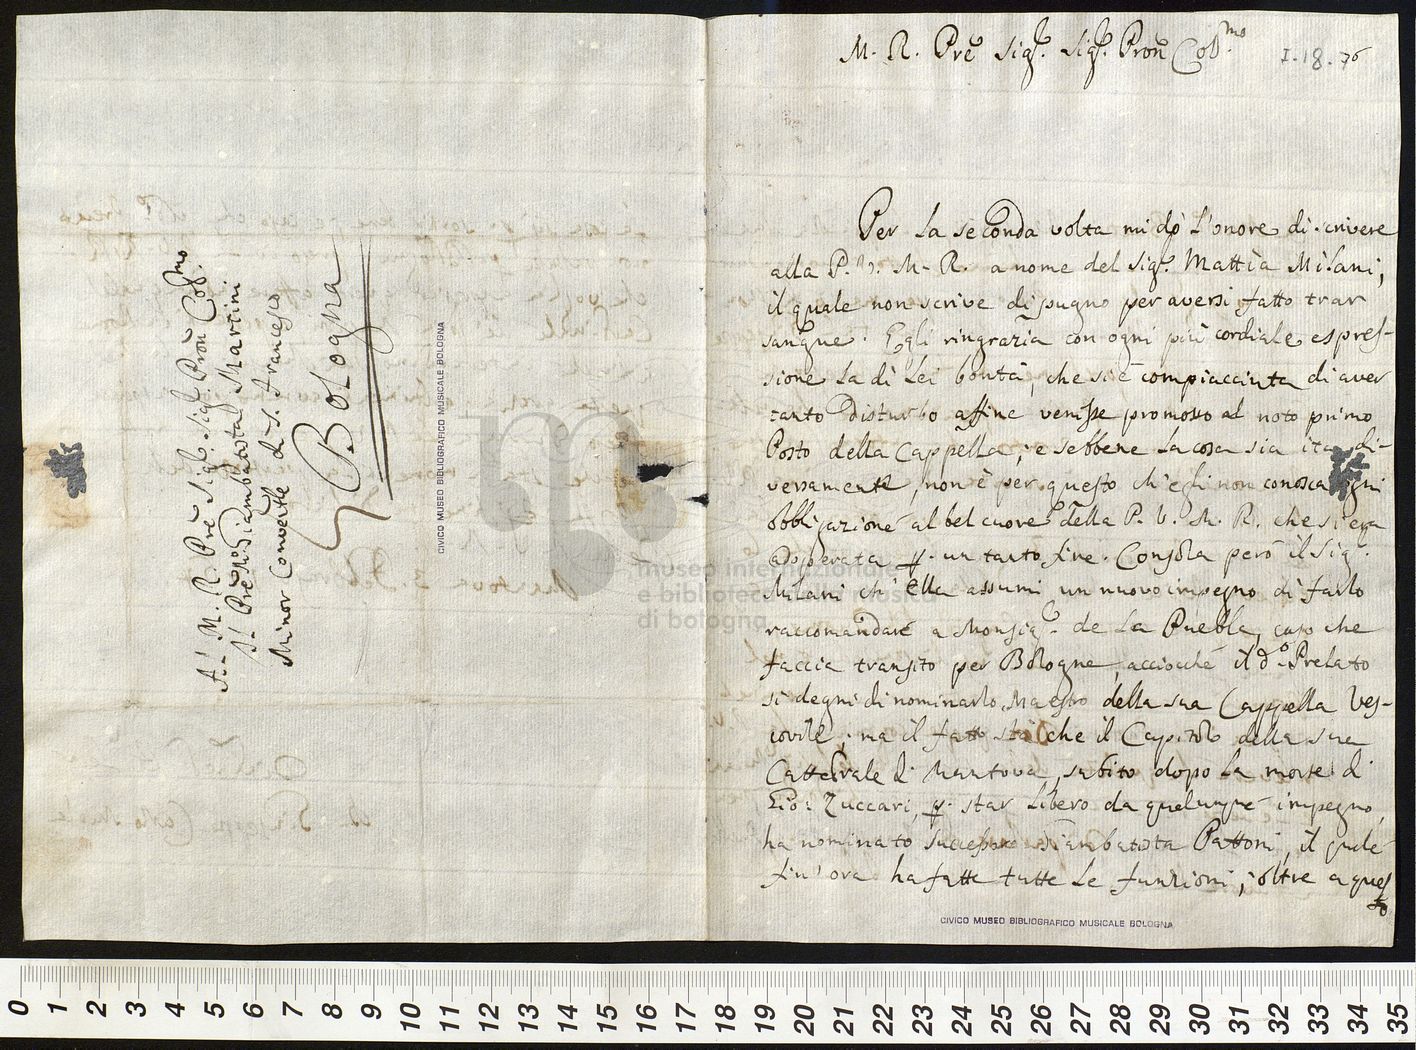 Al M. R. Prē Sig.r Sig.r Prōn Col.mo
Il Prē Mrō Giambatista Martini
Minor Convent.le di S. Francesco
Bologna
CIVICO MUSEO BIBLIOGRAFICO MUSICALE BOLOGNA
M. R. Prē Sig.r Sig.r Prōn Col.mo
I.18.76
Per la seconda volta mi dò l'onore di scrivere
alla P. V. M. R. a nome del Sig.r Mattia Milani,
il quale non scrive di pugno per aversi fatto trar
sangue. Egli ringrazia con ogni più cordiale espres-
sione la di Lei bontà, che si è compiacciuta di aver
tanto disturbo affine venisse promosso al noto primo
Posto della Cappella; e sebbene la cosa sia ita di-
versamente, non è per questo ch'egli non conosca ogni
obbligazione al bel cuore della P. V. M. R. che si era
adoperata p. un tanto fine. Consola però il Sig.r
Milani ch'Ella assumi un nuovo impegno di farlo
raccomandare a Monsig.r de La Puebla, caso che
faccia transito per Bologne, acciocchè il d.o Prelato
si degni di nominarlo Maestro della sua Cappella Ves-
covile; ma il fatto stà che il Capitolo della sua
Cattedrale di Mantova, subito dopo la morte di
Gio: Zuccari, p. star libero da qualunque impegno,
ha nominato successore Giambatista Pattoni, il quale
fin'ora ha fatte tutte le funzioni; oltre a ques
to
CIVICO MUSEO BIBLIOGRAFICO MUSICALE BOLOGNA
museo internazionale
e biblioteca della musica
di bologna
0 1 2 3 4 5 6 7 8 9 10 11 12 13 14 15 16 17 18 19 20 21 22 23 24 25 26 27 28 29 30 31 32 33 34 35